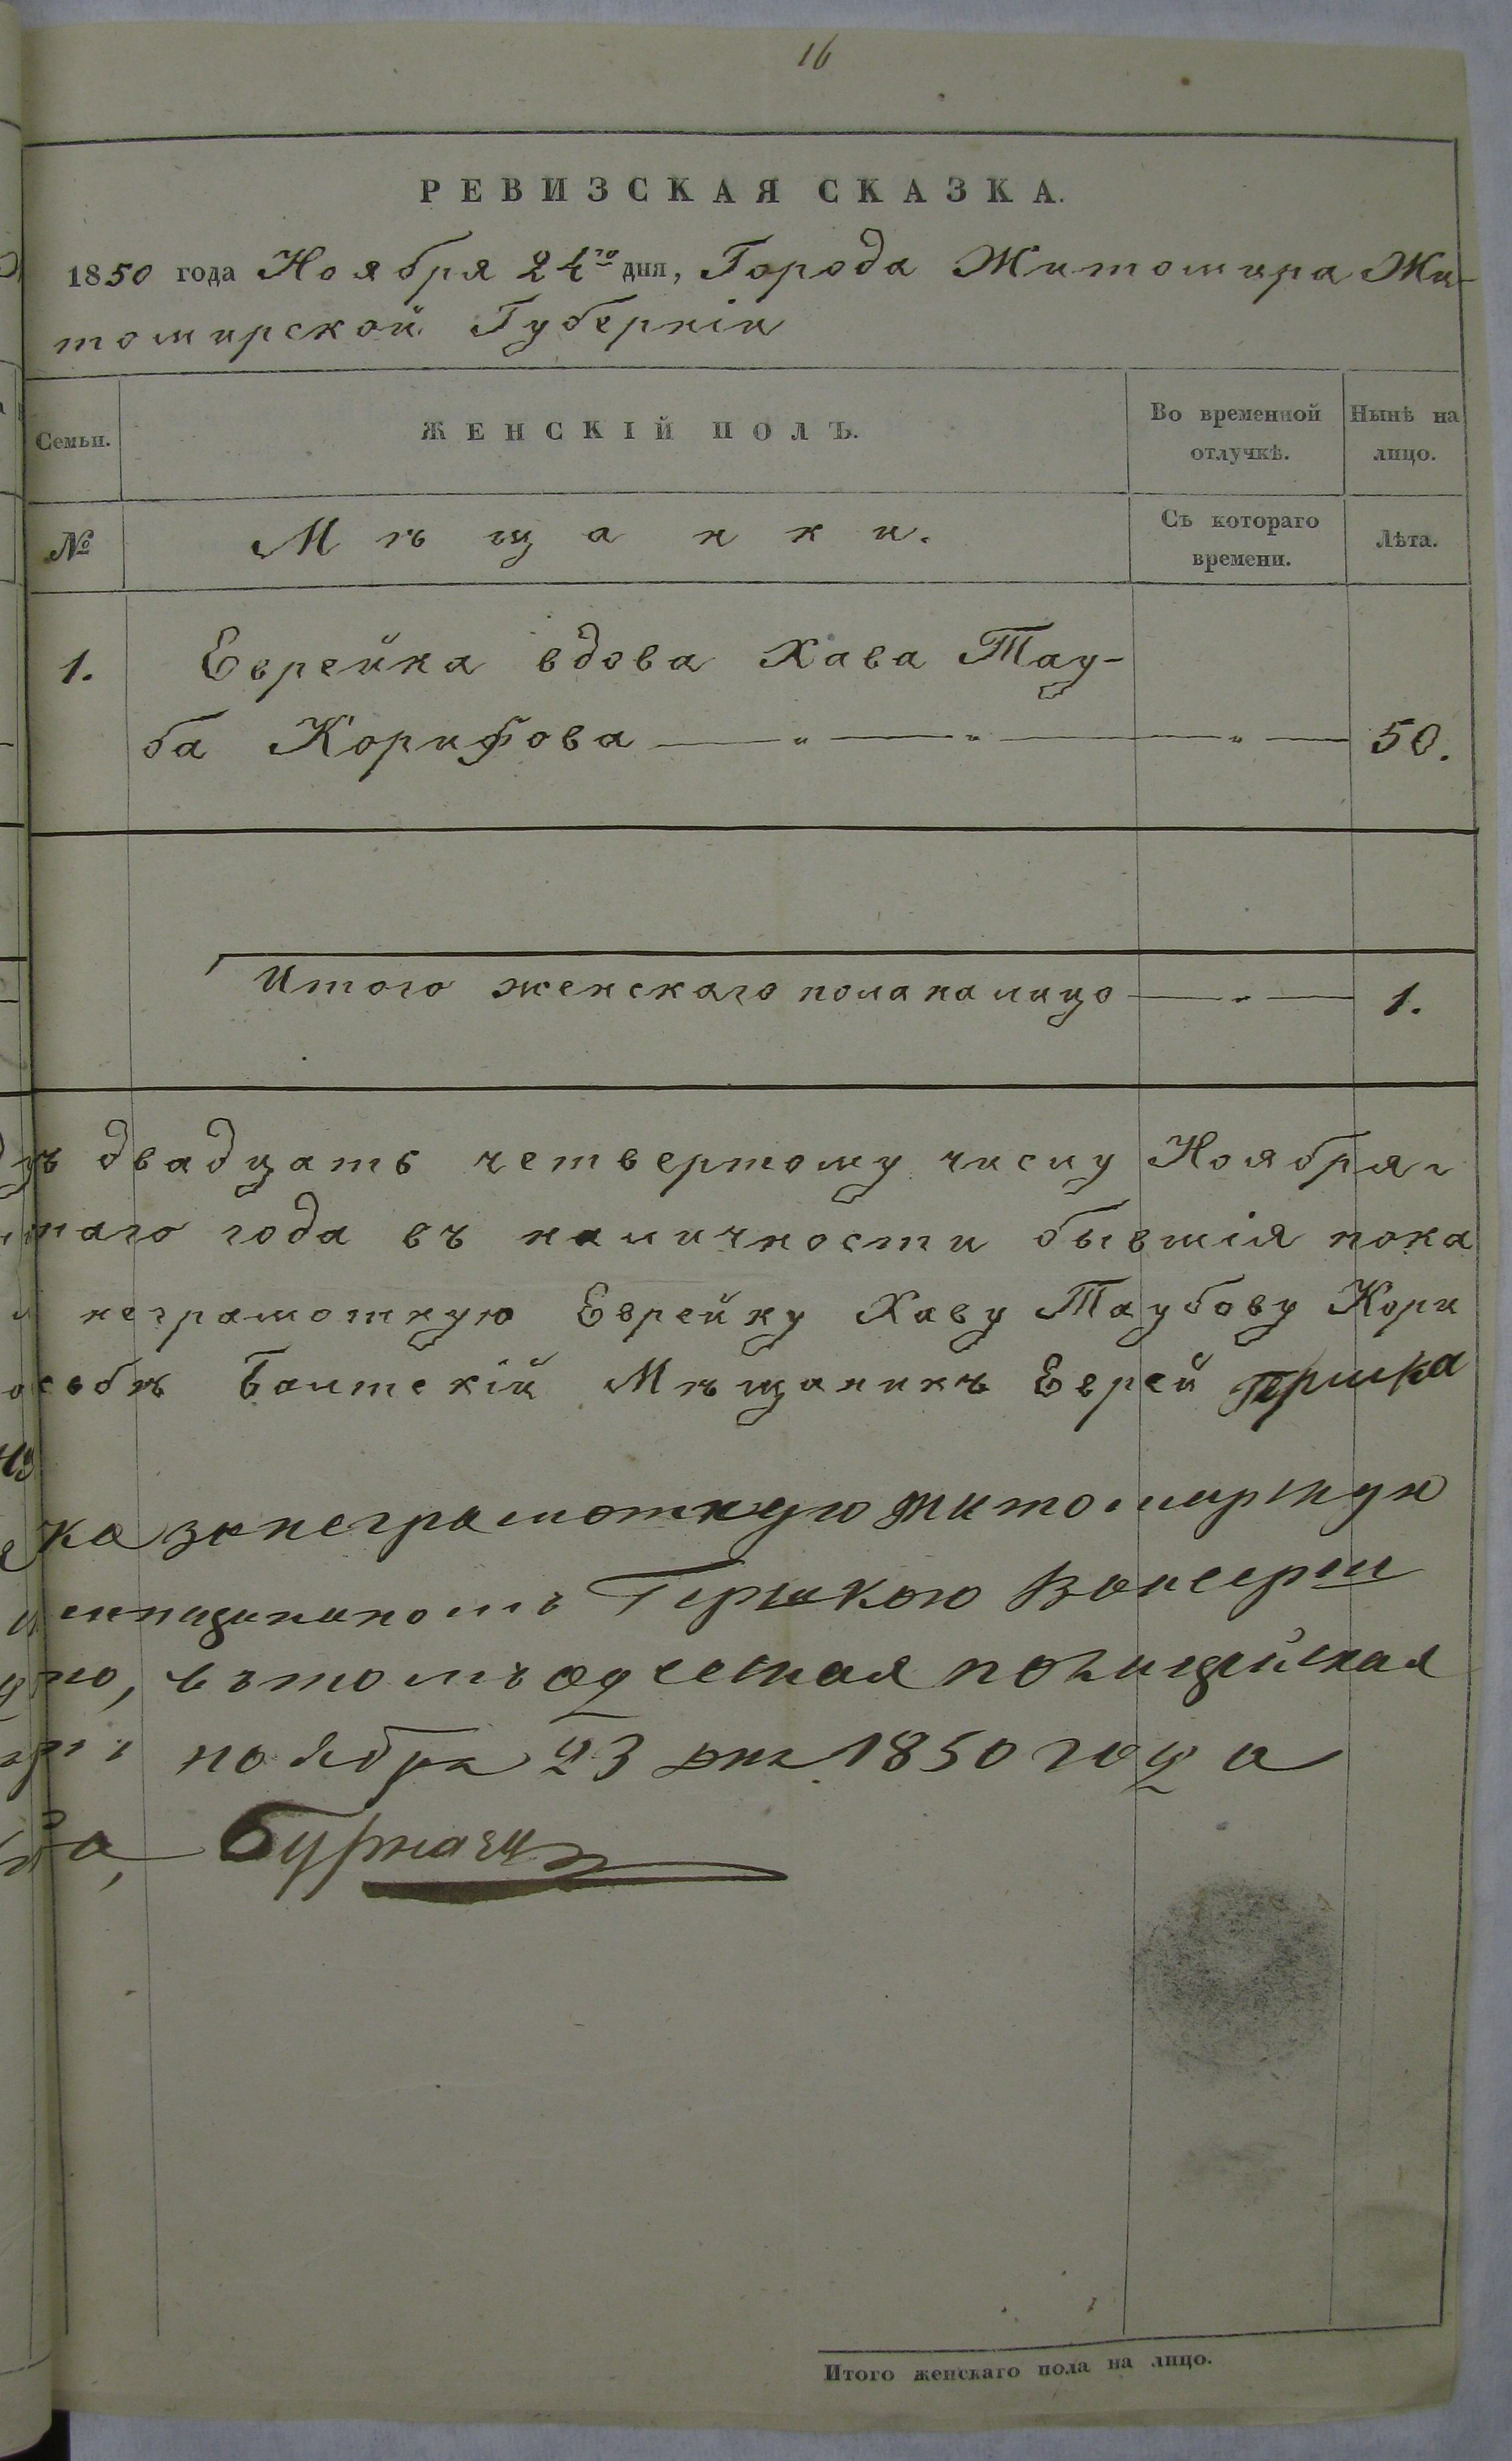 16
РЕВИЗСКАЯ СКАЗКА.
1850 года Ноября 24го дня, Города Житомира Жи-
томирской Губерніи
Семьи.
ЖЕНСКІЙ ПОЛЪ.
Во временной отлучкѣ.
Нынѣ на лицо.
№
Мѣщанки.
Съ котораго времени.
Лѣта.
1. Еврейка вдова Хава Тау-
ба Корифова 50.
Итого женскаго пола на лицо 1.
двадцать четвертому числу Ноября
года въ наличности бывшія пока
неграмотную Еврейку Хаву Таубову Кори
Балтскій Мѣщанинъ Еврей Гершка
ка за неграмотную житомирскую
мѣщаниномъ Гершкою
въ томъ одесская полицейская
ноября 23 дня 1850 года
Итого женскаго пола на лицо.